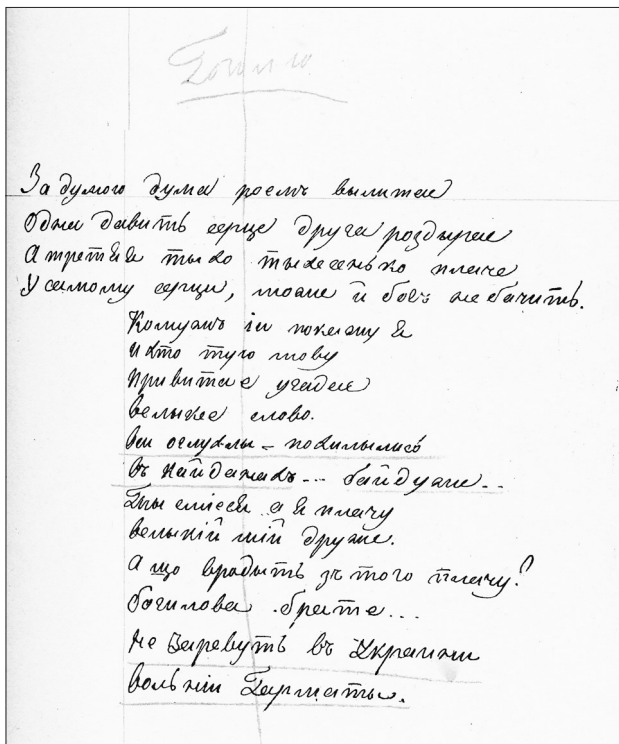 Гоголю
За думою дума роемъ вылитае
Одна давить серце друга роздырае
А третяя тыхо тыхесенько плаче
У самому серци, може й богъ не бачить.
Комужъ іи покажу я
И хто тую мову
Привитае угадае
Велыкее слово.
Вси оглухлы – похилылись
Въ кайданахъ... байдуже..
Ты сміесся а я плачу
Велыкій мій друже.
А що вродыть зъ того плачу?
Богилова брате...
Не заревуть въ Украини
Вольніи Гарматы.